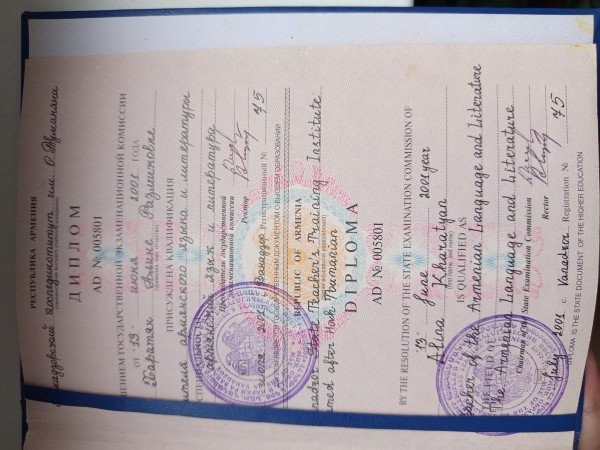 РЕСПУБЛИКА АРМЕНИЯ
пединститут им. О. Туманяна
ДИПЛОМ
AD № 005801
ГОСУДАРСТВЕННОЙ ЭКЗАМЕНАЦИОННОЙ КОМИССИИ
ОТ "13" июня 2001 ГОДА
Размиковне
ПРИСВОЕНА КВАЛИФИКАЦИЯ
армянского языка и литературы
язык и литература
Председатель государственной
экзаменационной комиссии
Ректор
2001 г. Ванадзор Регистрационный № 75
ГОСУДАРСТВЕННЫМ ДОКУМЕНТОМ О ВЫСШЕМ ОБРАЗОВАНИИ
REPUBLIC OF ARMENIA
State Teacher's Training Institute
after Hovh. Tumanian
DIPLOMA
AD № 005801
BY THE RESOLUTION OF THE STATE EXAMINATION COMMISSION OF
"13" June 2001 year
Alina Kharatyan
(first name, last name)
IS QUALIFIED AS
of the Armenian Language and Literature
IN THE FIELD OF
The Armenian Language and Literature
Chairman of the State Examination Commission
Rector
July 2001 c. Vanadzor Registration № 75
DIPLOMA IS THE STATE DOCUMENT OF THE HIGHER EDUCATION